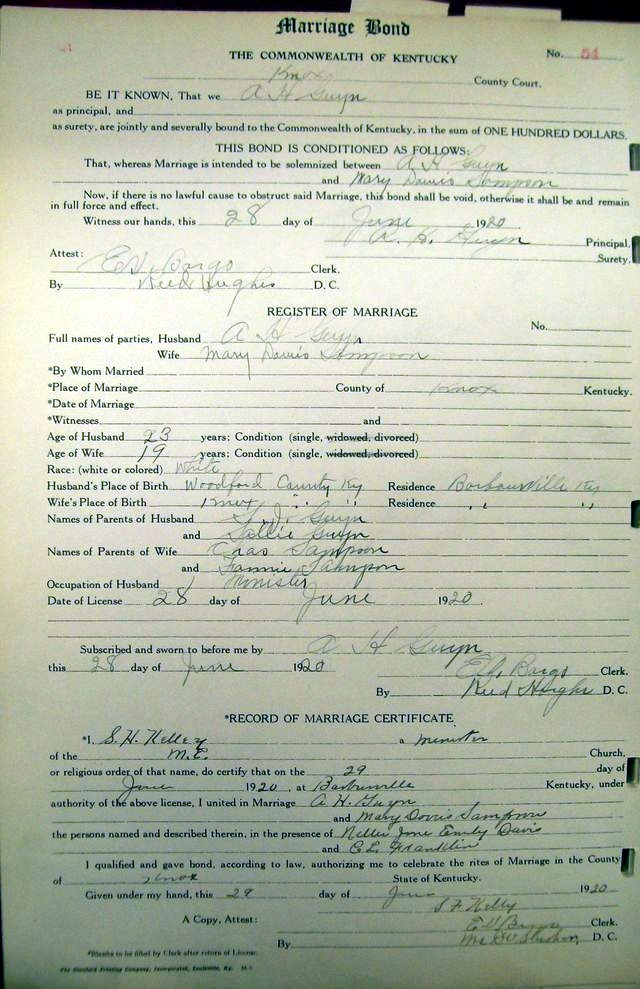 Marriage Bond
THE COMMONWEALTH OF KENTUCKY No. 54
Knox County Court.
BE IT KNOWN, That we A H Gwyn
as principal, and
as surety, are jointly and severally bound to the Commonwealth of Kentucky, in the sum of ONE HUNDRED DOLLARS.
THIS BOND IS CONDITIONED AS FOLLOWS:
That, whereas Marriage is intended to be solemnized between A H Gwyn
and Mary Davis Sampson
Now, if there is no lawful cause to obstruct said Marriage, this bond shall be void, otherwise it shall be and remain
in full force and effect.
Witness our hands, this 28 day of June 1920.
A. H. Gwyn Principal,
Surety.
Attest:
Bargo Clerk.
By Reed Hughes D. C.
REGISTER OF MARRIAGE
No.
Full names of parties, Husband A H Gwyn
Wife Mary Davis Sampson
*By Whom Married
*Place of Marriage County of Knox Kentucky.
*Date of Marriage
*Witnesses and
Age of Husband 23 years; Condition (single, widowed, divorced)
Age of Wife 19 years; Condition (single, widowed, divorced)
Race: (white or colored) White
Husband's Place of Birth Woodford County Ky Residence Barbourville Ky
Wife's Place of Birth Knox " " Residence " "
Names of Parents of Husband J. Gwyn
and Sallie Gwyn
Names of Parents of Wife Chas Sampson
and Fannie Sampson
Occupation of Husband Minister
Date of License 28 day of June 1920.
Subscribed and sworn to before me by A H Gwyn
this 28 day of June 1920
Bargo Clerk.
By Reed Hughes D. C.
*RECORD OF MARRIAGE CERTIFICATE
*I, S. H. Kelley a minister
of the M.E. Church,
or religious order of that name, do certify that on the 29 day of
June 1920, at Barbourville Kentucky, under
authority of the above license, I united in Marriage A H. Gwyn
and Mary Davis Sampson
the persons named and described therein, in the presence of Nellie Jone Emily Davis
and C E. Franklin
I qualified and gave bond, according to law, authorizing me to celebrate the rites of Marriage in the County
of Knox State of Kentucky.
Given under my hand, this 29 day of June 1920
Kelly
A Copy, Attest: Clerk.
By D. C.
*Blanks to be filled by Clerk after return of License.
The Standard Printing Company, Incorporated, Louisville, Ky.